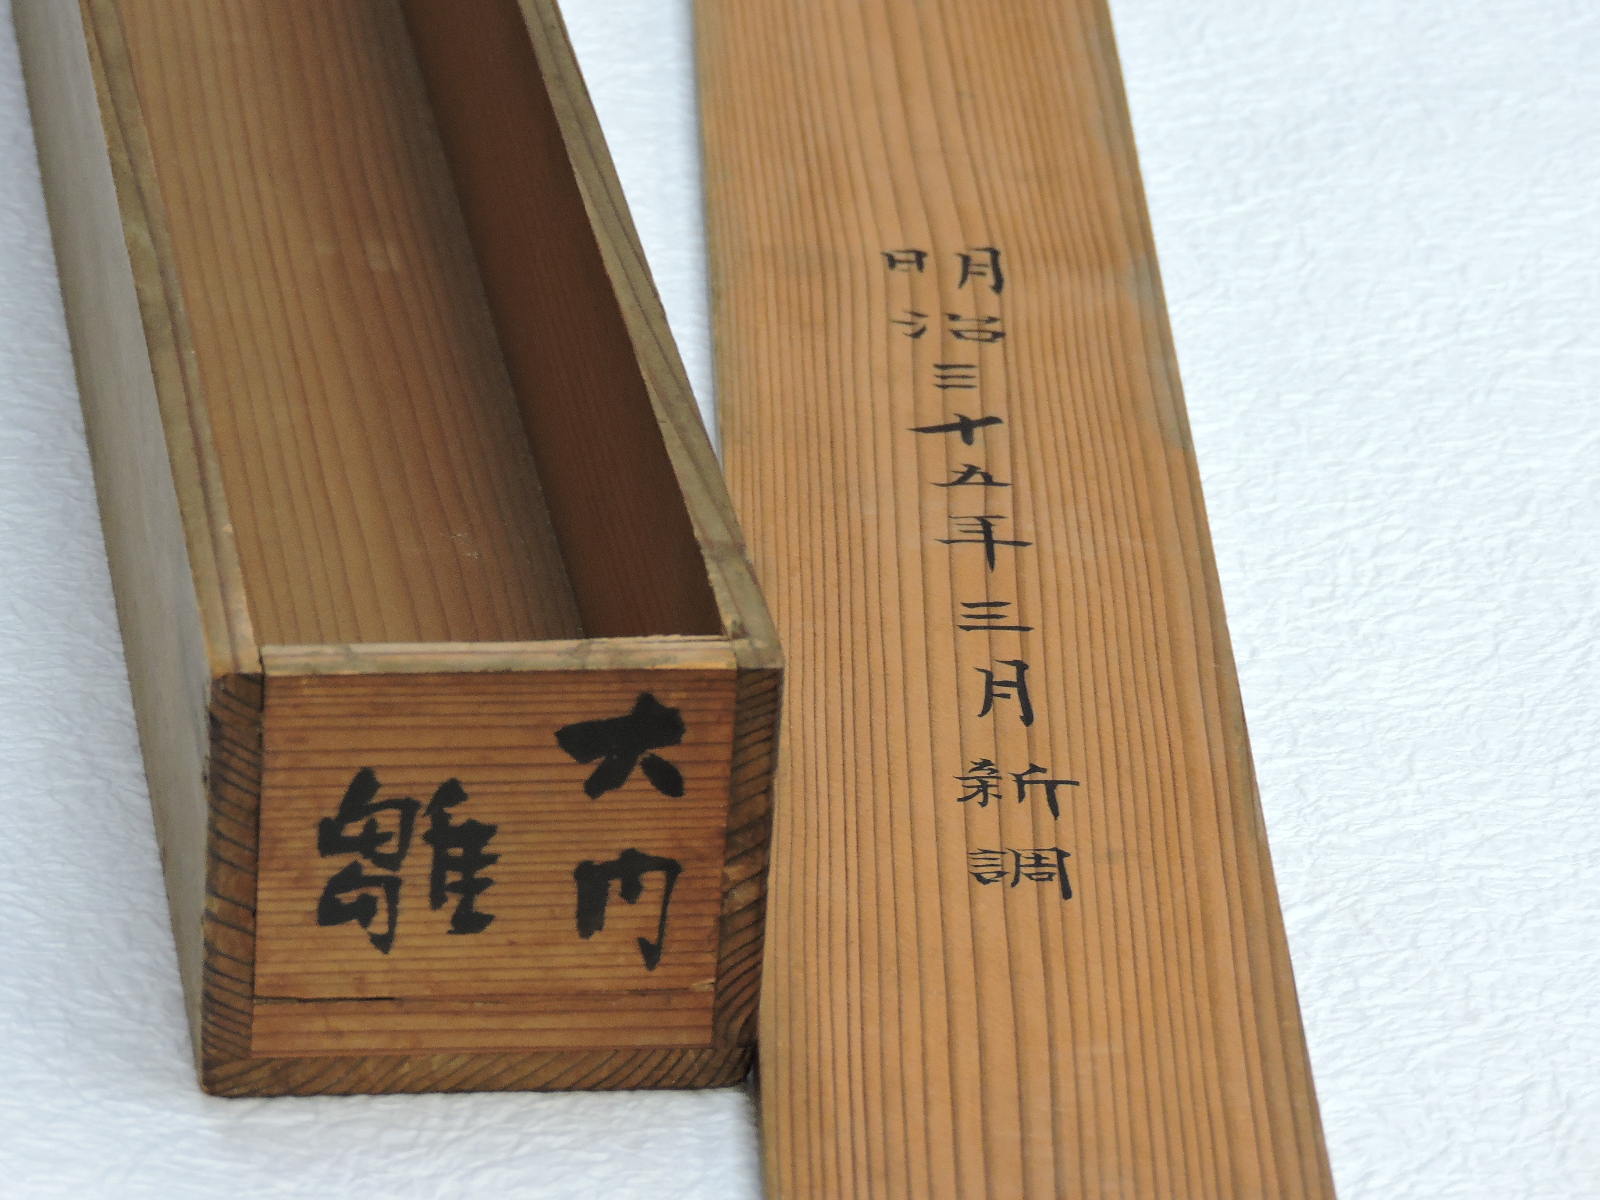 明治三十五年三月新調
大内
雛